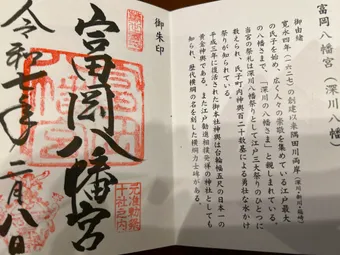 富岡八幡宮（深川八幡）
御由緒
寛永四年（一六二七）の創建以来隅田川両岸
の氏子を始め、広く人々の崇敬を集めている江戸最大
の八幡さまで、「深川の八幡さま」と親しまれている。
当宮の祭礼は「深川八幡祭り」として江戸三大祭りのひとつに
数えられ、氏子町内神輿百二十数基による勇壮な水かけ
祭りが知られている。
平成三年に復活された御本社神輿は台輪幅五尺の日本一の
黄金神輿である。また江戸勧進相撲発祥の神社としても
知られ、歴代横綱の名を刻した横綱力士碑がある。
御朱印
富岡八幡宮
令和七年
月八日